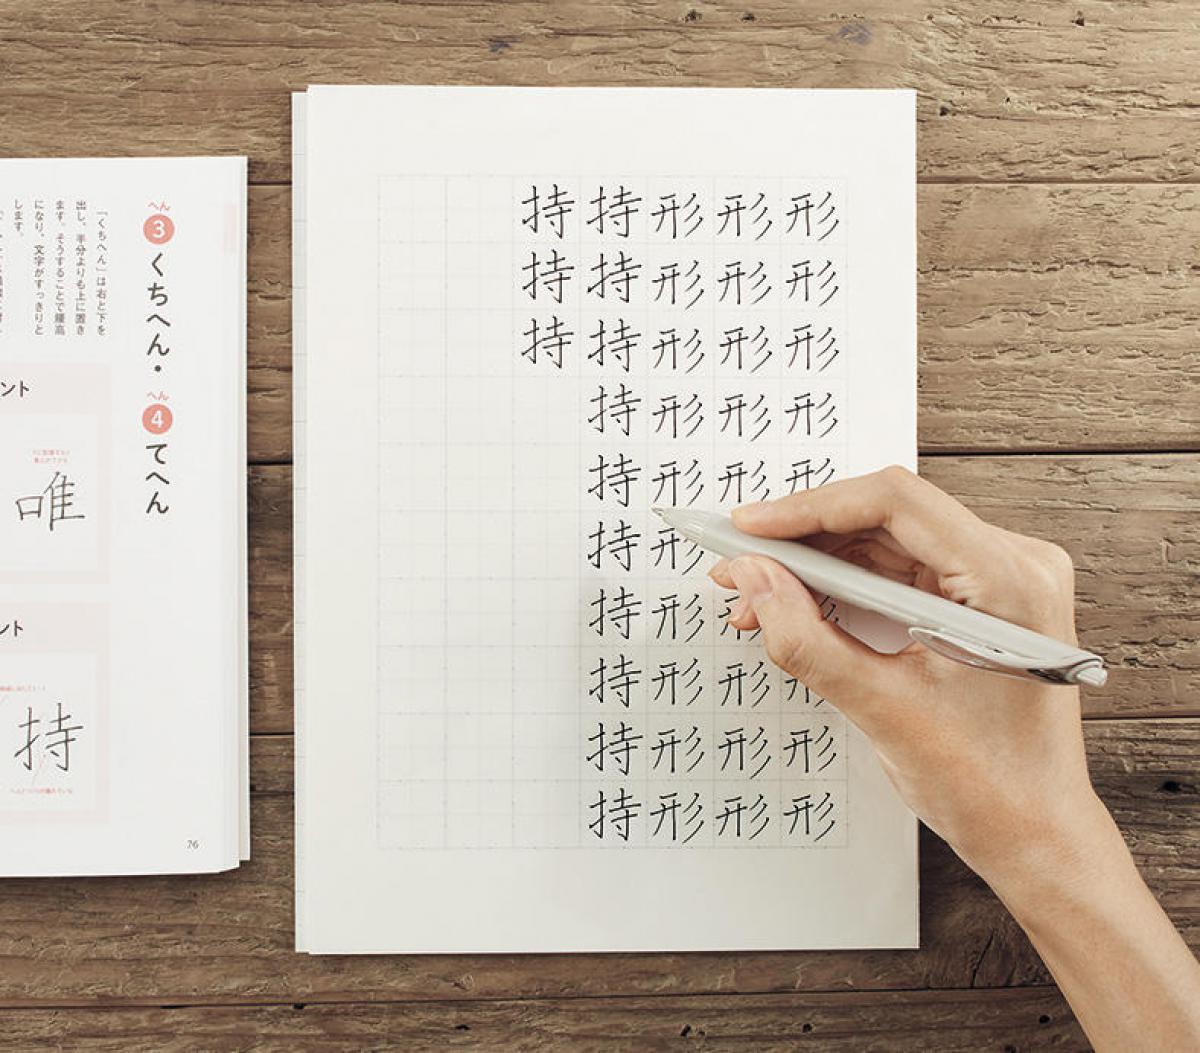 形形形形形形形形
形形形形形形形形形
形形形形形形形形形形
持持持持持持持持持持
持持持
へん
3 くちへん・
へん
4 てへん
「くちへん」は右と下を
出し、半分よりも上に置き
ます。そうすることで腰高
になり、文字がすっきりと
します。
ント
唯
ント
持
76